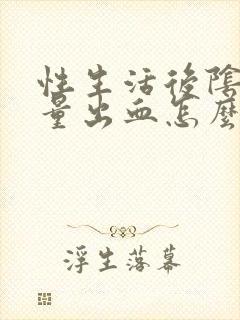 性生活後陰
量出血怎麼
浮生落幕